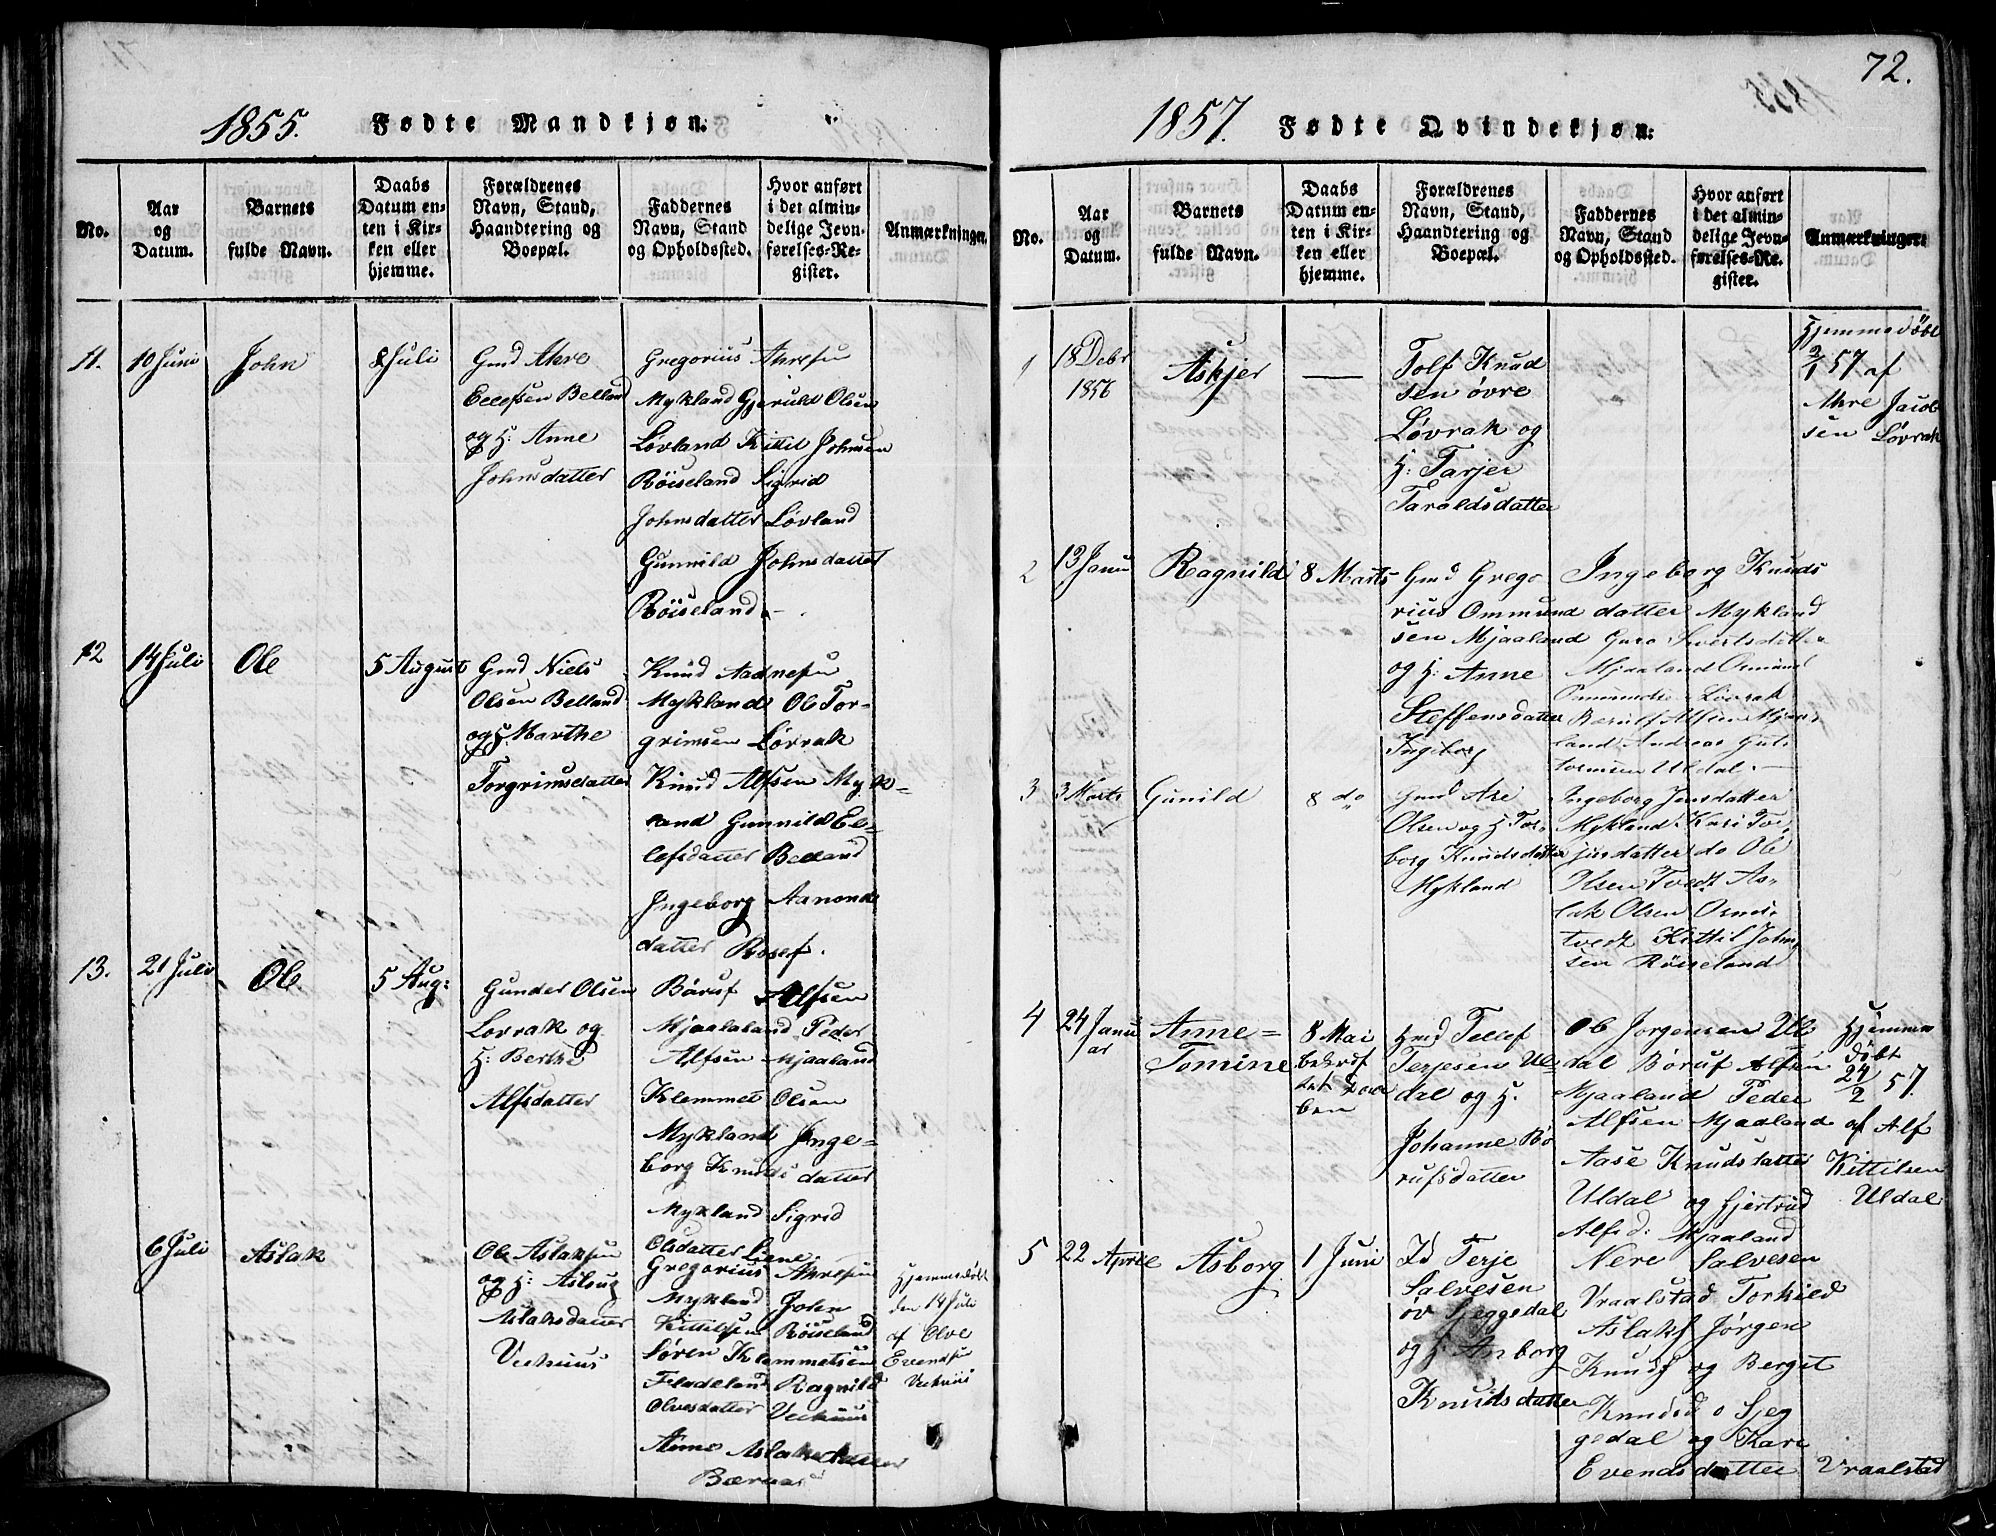 72.
1855. Fødte Mandkjøn.
No.
Aar
og
Datum.
Barnets
fulde Navn.
Daabs
Datum en-
ten i Kir-
ken eller
hjemme.
Forældrenes
Navn, Stand,
Haandtering og
Boepæl.
Faddernes
Navn, Stand
og Opholdssted.
Hvor anført
i det almin-
delige Jevn-
førelses-Re-
gister.
Anmærkninger.
11.
10 Juni
John
8 Juli
Gmd Ahre
Ellefsen Belland
og H: Anne
Johnsdatter
Gregorius Ahresen
Mykland Gjeruld Olsen
Lovland Kittil Johnsen
Röiseland Sigrid
Johnsdatter Lövland
Gunnild Johnsdatter
Röiseland.
12
14 Juli
Ole
5 August
Gmd Niels
Olsen Belland
og H. Marthe
Torgrimsdatter
Knud Aadnesen
Mykland Ole Tor-
grimsen Lövrak
Knud Alfsen Myk-
land Gunnild El-
lefsdatter Belland
Ingeborg Aanond
datter Rosef.
13.
21 Juli
Ole
5 Aug:
Gunder Olsen
Lovrak og
H: Berthe
Alfsdatter
Böruf Alfsen
Mjaaland Peder
Alfsen Mjaaland
Klemmet Olsen
Mykland Inge=
borg Knuds datter
Mykland Sigrid
Olsdatter Liene
6 Juli
Aslak
Ole Aslaksen
og H: Aslaug
Aslaksdatter
Vehuus
Gregorius Ahresen
Mykland John
Kittilsen Röiseland
Sören Klemmetsen
Fladeland Ragnild
Olvesdatter Vehuus
Anne Aslaksdatter
Hjemmedöbt
den 14 Juli
af Olve
Evendsen
Vehuus
1857. Fødte Qvindekjøn.
No.
Aar
og
Datum.
Barnets
fulde Navn.
Daabs
Datum en-
ten i Kir-
ken eller
hjemme.
Forældrenes
Navn, Stand,
Haandtering og
Boepæl.
Faddernes
Navn, Stand
og Opholdssted.
Hvor anført
i det almin-
delige Jevn-
førelses-Re-
gister.
Anmærkninger.
1
18 Debr
1856
Askjer
—
Tolf Knud
sen övre
Lövrak og
H: Tarjer
Taraldsdatter
Hjemmedöbt
2/1 57 af
Ahre Jacob
sen Lövrak
2
13 Janu
Ragnild
8 Marts
Gmd Grego
rius Ommund
sen Mjaaland
og H: Anne
Steffensdatter
Ingeborg
Ingeborg Knuds
datter Mykland
Mjaaland Osmund
Lövrak
Böruf Alfsen Mjaa-
land Andreas Gut-
tormsen Uldal.
3
3 Marts
Gunild
8 do
Gmd Are
Olsen og H Tor-
borg Knudsdatter
Mykland
Ingeborg Jensdatter
Mykland Kari Tor-
jusdatter do Ole
Olsen Tvedt As-
lak Olsen Osmd-
tvedt Kittil John-
sen Röiseland
4
24 Janu
ar
Anne=
Tomine
8 Mai
bekræf
tet Daa
ben
Gmd Tellef
Terjesen Ul
dal og H.
Johanne Bö
rufsdatter
Ole Jorgensen Ul
dal Böruf Alfsen
Mjaaland Peder
Alfsen Mjaaland
Aase Knudsdatter
Uldal og Gjertrud
Alfsd: Mjaaland
Hjemme
döbt
24/2 57.
af Alf
Kittilsen
Uldal
5
22 April
Asborg
1 Juni
Id Terje
Salvesen
öv Sjeggedal
og H: Anborg
Knudsdatter
Nere Salvesen
Vraalstad Torkild
Aslaks Jörgen
Knuds og Berget
Knudsd o Sjeg
gedal og Kari
Evendsdatter Vraalstad